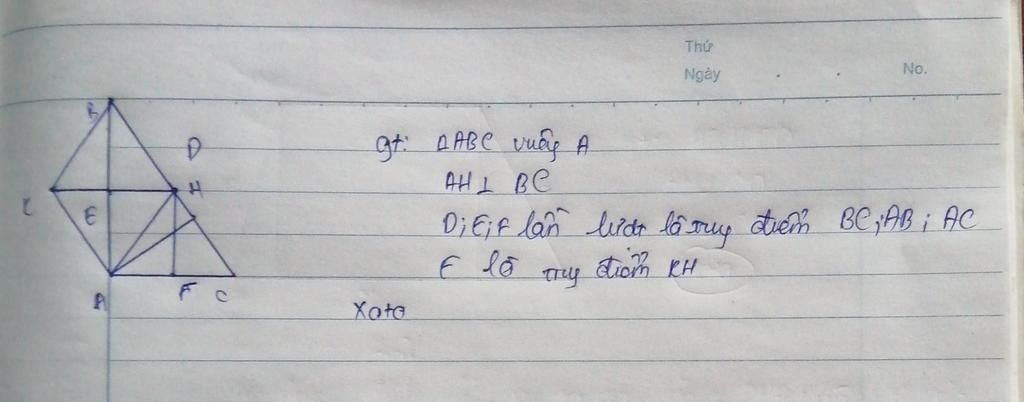 Thứ
Ngày . . No.
B
D
gt: ΔABC vuông A
H
AH ⊥ BC
E
D; E; F lần lượt là trung điểm BC; AB; AC
E là trung điểm KH
A F C